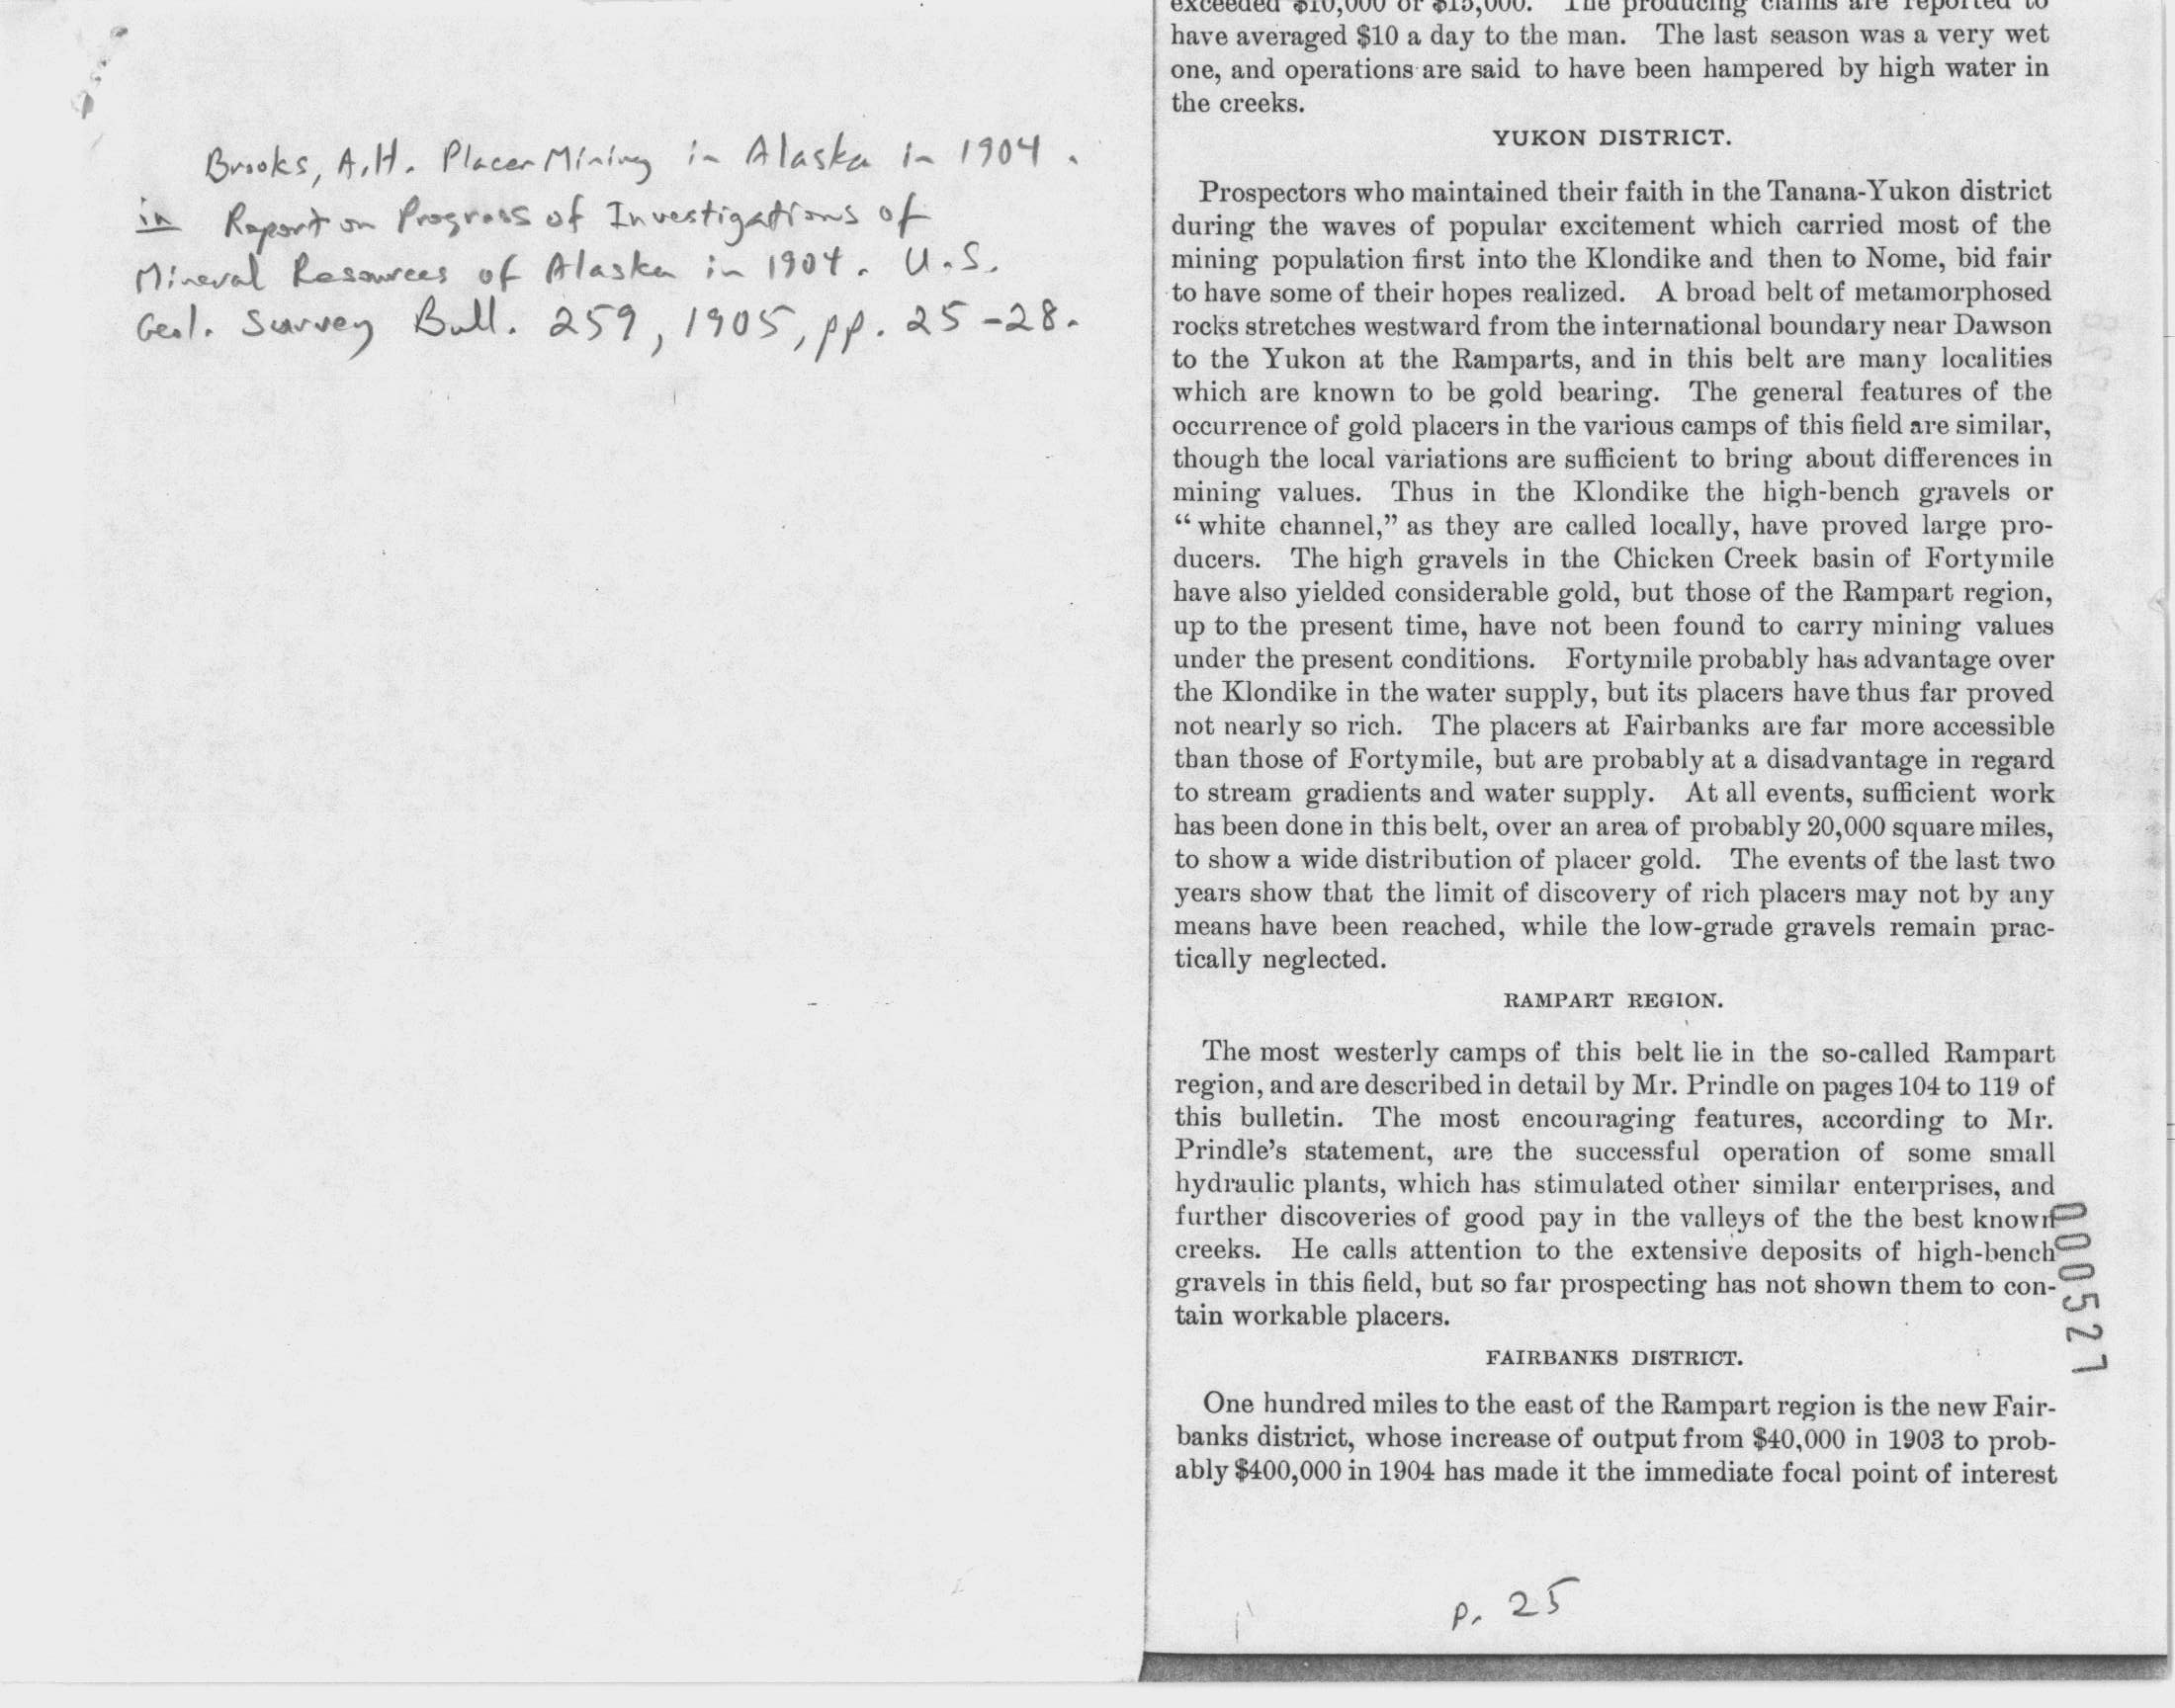 Brooks, A.H. Placer Mining in Alaska in 1904.
in Report on Progress of Investigations of
Mineral Resources of Alaska in 1904. U.S.
Geol. Survey Bull. 259, 1905, pp. 25-28.
exceeded $10,000 or $15,000. The producing claims are reported to
have averaged $10 a day to the man. The last season was a very wet
one, and operations are said to have been hampered by high water in
the creeks.
YUKON DISTRICT.
Prospectors who maintained their faith in the Tanana-Yukon district
during the waves of popular excitement which carried most of the
mining population first into the Klondike and then to Nome, bid fair
to have some of their hopes realized. A broad belt of metamorphosed
rocks stretches westward from the international boundary near Dawson
to the Yukon at the Ramparts, and in this belt are many localities
which are known to be gold bearing. The general features of the
occurrence of gold placers in the various camps of this field are similar,
though the local variations are sufficient to bring about differences in
mining values. Thus in the Klondike the high-bench gravels or
"white channel," as they are called locally, have proved large pro-
ducers. The high gravels in the Chicken Creek basin of Fortymile
have also yielded considerable gold, but those of the Rampart region,
up to the present time, have not been found to carry mining values
under the present conditions. Fortymile probably has advantage over
the Klondike in the water supply, but its placers have thus far proved
not nearly so rich. The placers at Fairbanks are far more accessible
than those of Fortymile, but are probably at a disadvantage in regard
to stream gradients and water supply. At all events, sufficient work
has been done in this belt, over an area of probably 20,000 square miles,
to show a wide distribution of placer gold. The events of the last two
years show that the limit of discovery of rich placers may not by any
means have been reached, while the low-grade gravels remain prac-
tically neglected.
RAMPART REGION.
The most westerly camps of this belt lie in the so-called Rampart
region, and are described in detail by Mr. Prindle on pages 104 to 119 of
this bulletin. The most encouraging features, according to Mr.
Prindle's statement, are the successful operation of some small
hydraulic plants, which has stimulated other similar enterprises, and
further discoveries of good pay in the valleys of the the best known
creeks. He calls attention to the extensive deposits of high-bench
gravels in this field, but so far prospecting has not shown them to con-
tain workable placers.
FAIRBANKS DISTRICT.
One hundred miles to the east of the Rampart region is the new Fair-
banks district, whose increase of output from $40,000 in 1903 to prob-
ably $400,000 in 1904 has made it the immediate focal point of interest
000527
p. 25